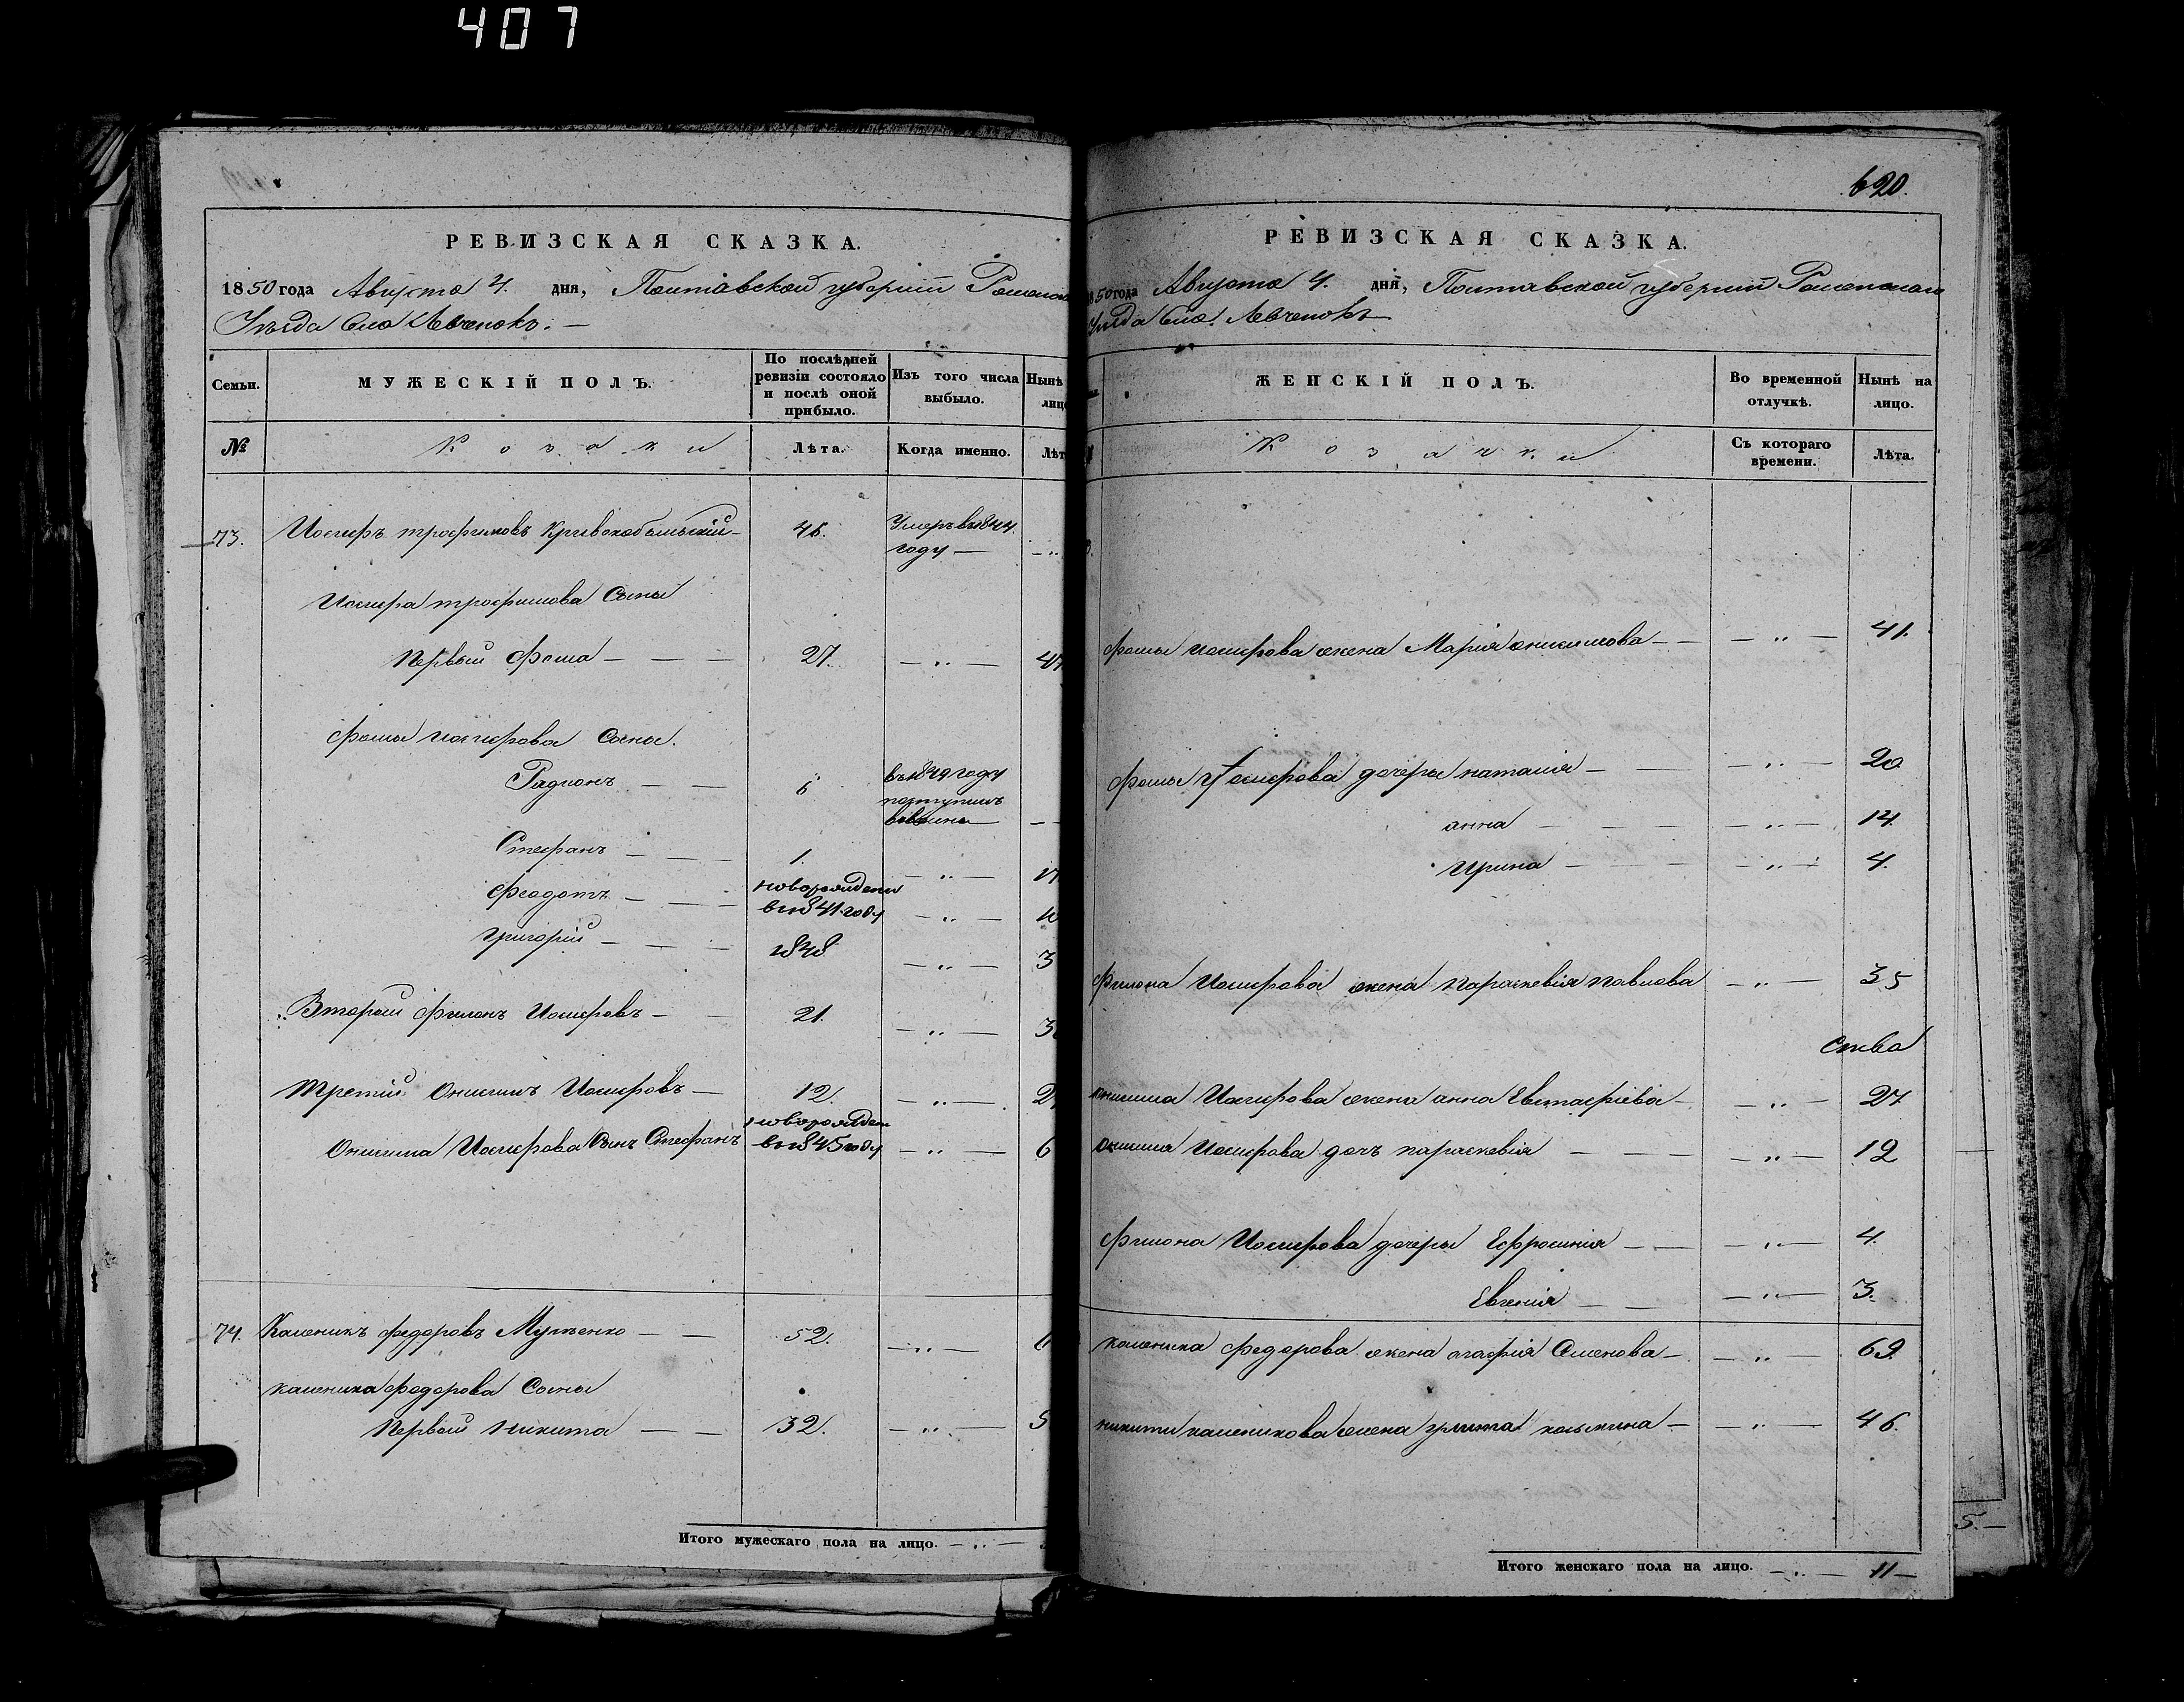 407
РЕВИЗСКАЯ СКАЗКА.
1850 года Августа 4. дня, Полтавской губернiи
Уѣзда Села Левченокъ. —
Семьи.
МУЖЕСКІЙ ПОЛЪ.
По послѣдней ревизіи состояло и послѣ оной прибыло.
Изъ того числа выбыло.
Нынѣ
лиц
№
Козаки
Лѣта.
Когда именно.
Лѣт
73. Иосифъ трофимовъ 46. Умеръ въ 1844.
году —
Иосифа трофимова Сыны
Первый Фома — — — 27. — „ —
Фомы иосифова Сыны.
Радионъ — — 6 въ 1849 году
поступилъ
Стефанъ — — 1. — „ —
Феодотъ — — новорожден
в 1841 году — „ — 10
григорій — — 1848 — „ — 3
Второй филонъ Иосифовъ — 21. — „ — 3
Третій Онисимъ Иосифовъ — 12. — „ — 2
новорожден
Онисима Иосифова Сынъ Стефанъ в 1845 году — „ — 6
74. Каленикъ федоровъ — — 52. — „ —
каленика федорова Сыны
Первый никита — — 32. — „ — 5
Итого мужескаго пола на лицо. — „ —
620.
РЕВИЗСКАЯ СКАЗКА.
850 года Августа 4. дня, Полтавской губернiи Роменскаго
Уѣзда Села. Левченокъ
ЖЕНСКІЙ ПОЛЪ.
Во временной отлучкѣ.
Нынѣ на лицо.
Козачки
Съ котораго времени.
Лѣта.
Фомы иосифова жена Марія онисимова — — „ — 41.
Фомы Иосифова дочеры наталія — — — „ — 20
анна — — — — „ — 14.
Ирина — — — — „ — 4.
Филона Иосифова жена параскевія павлова — „ — 35
онисима Иосифова жена анна Евстафіева — — „ — 27
онисима Иосифова дочь параскевія — — — — „ — 12
филона Иосифова дочеры Ефросинія — — — „ — 4.
Евгенія — — — „ — 3.
каленика федорова жена агафія Семенова — — „ — 69.
никиты каленикова жена — — „ — 46.
Итого женскаго пола на лицо. — „ — 11 —
5. —